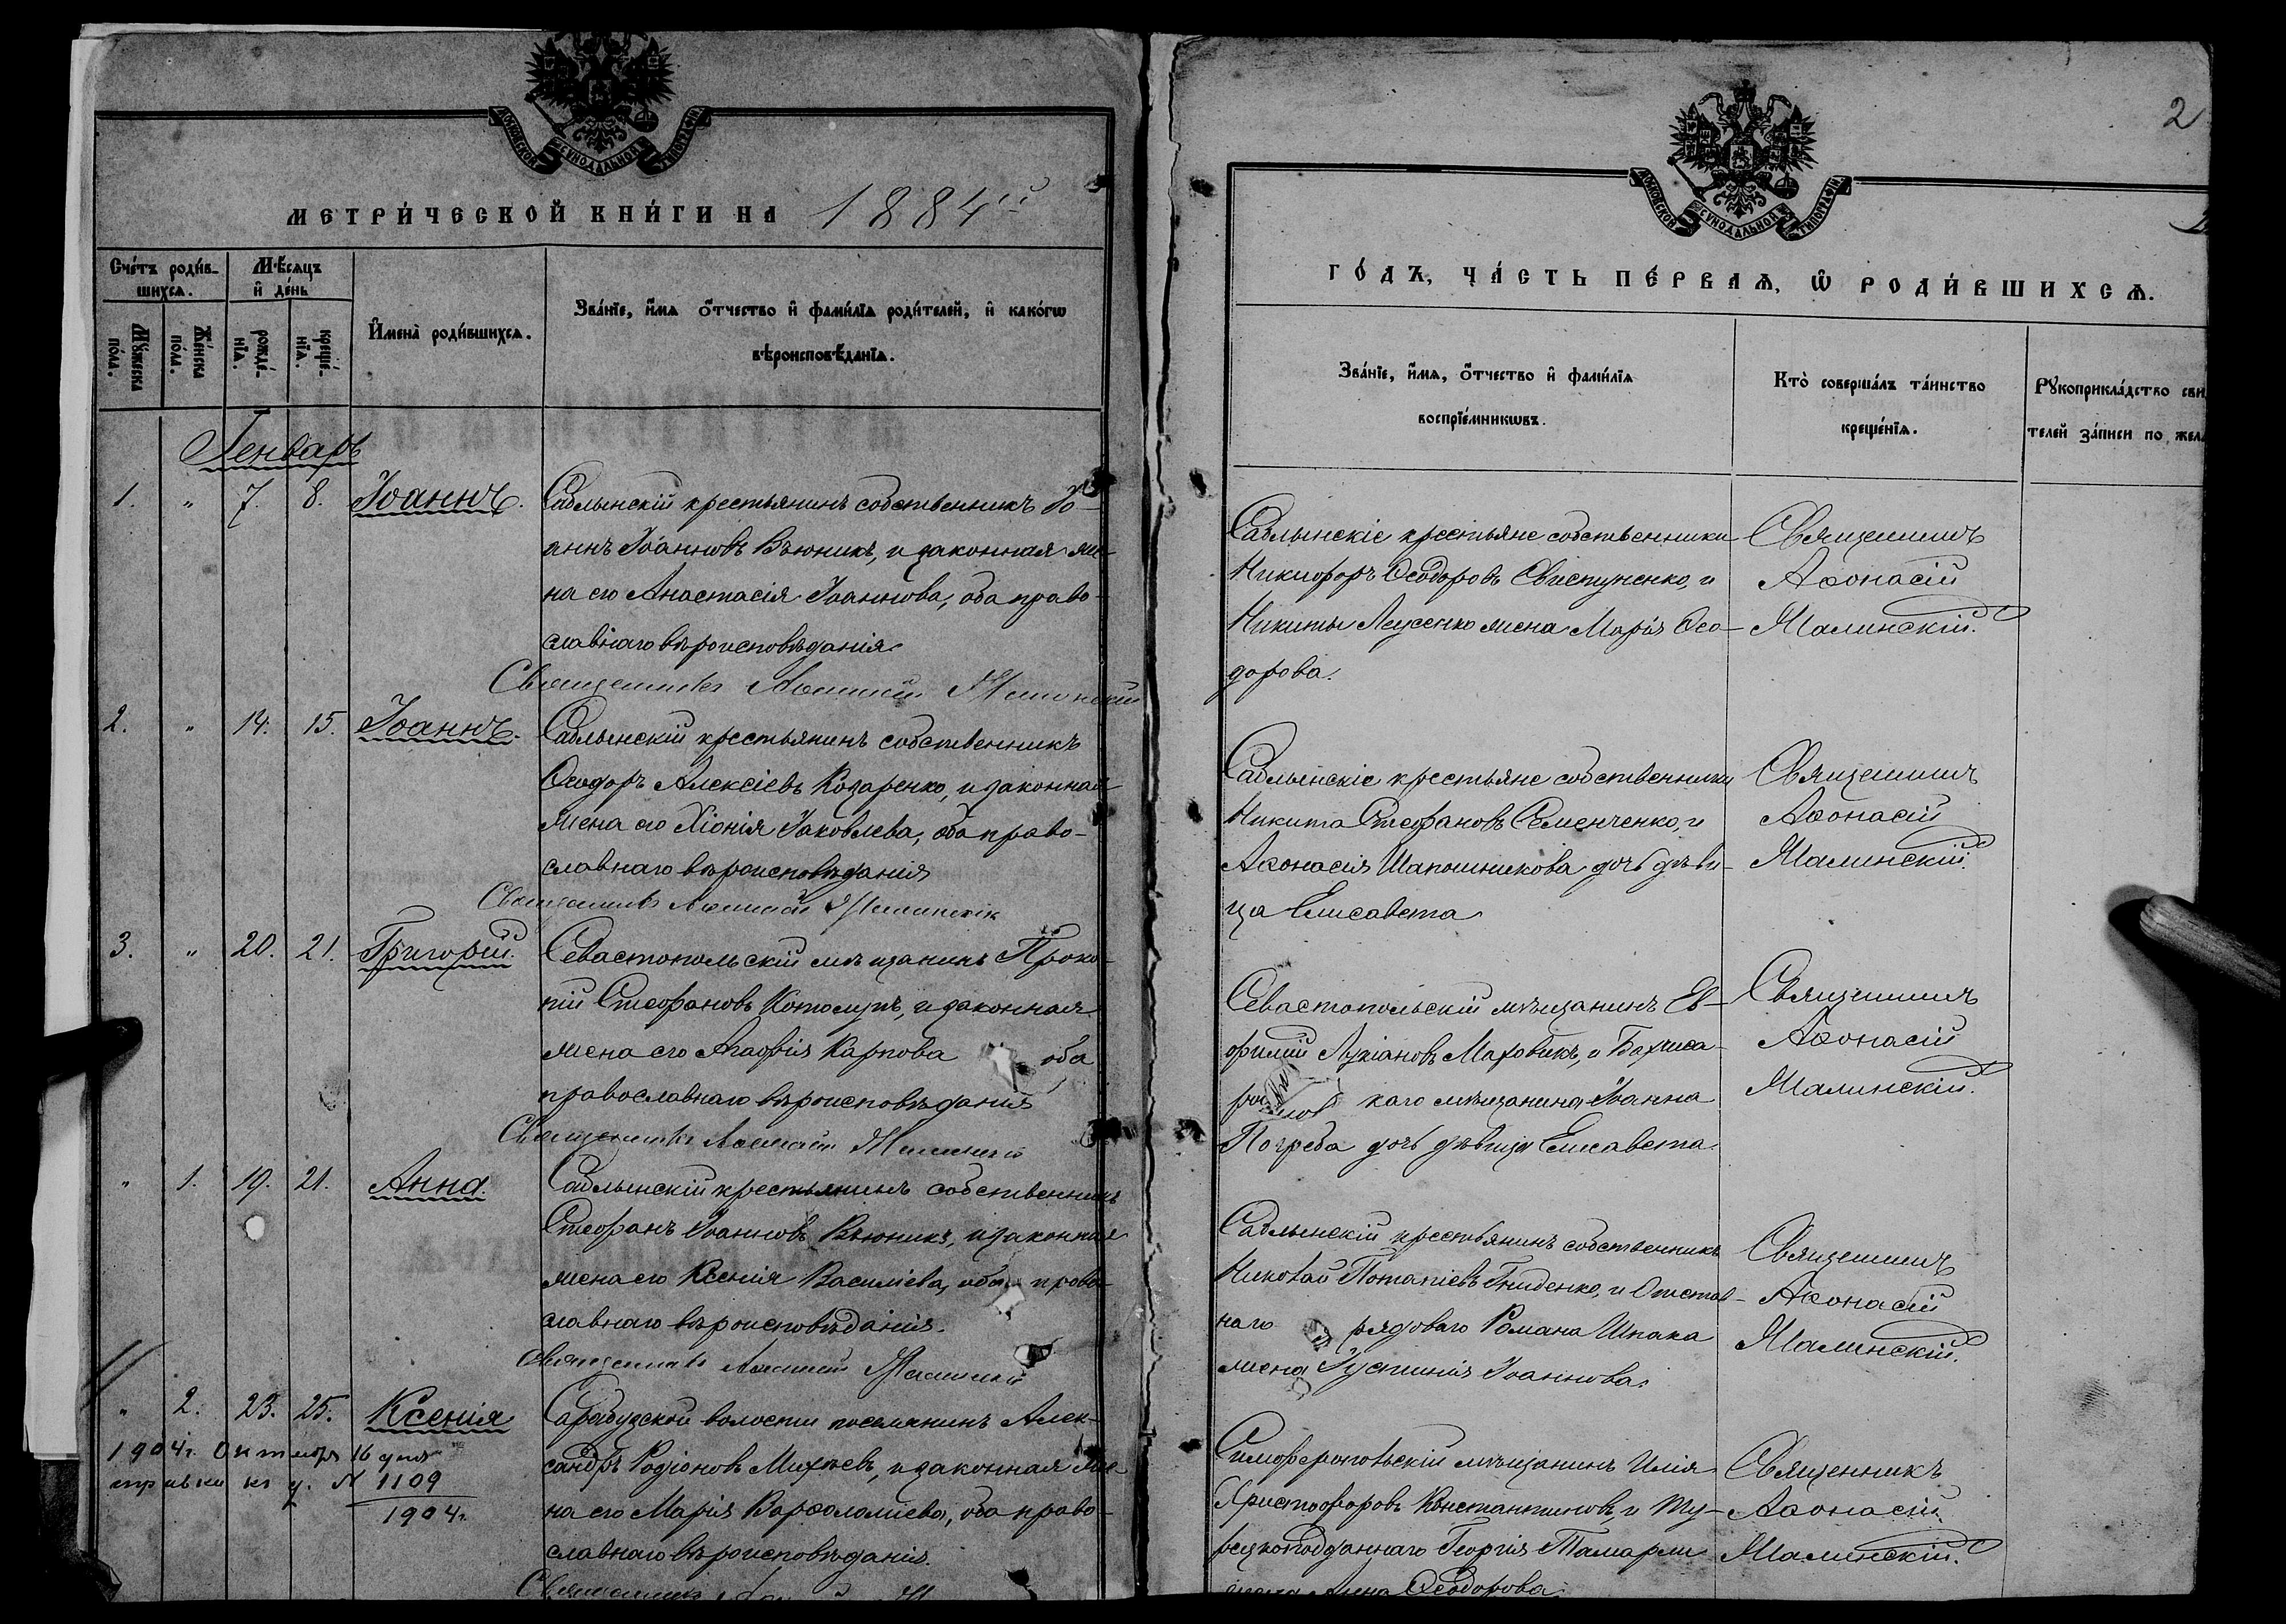 МОСКОВСКОЙ СѴНОДАЛЬНОЙ ТИПОГРАФІИ
МЕТРИ́ЧЕСКОЙ КНИ́ГИ НА 1884й
Сче́тъ роди́в-
шихсѧ.
Мꙋ́жеска
по́ла.
Же́нска
по́ла.
Мѣ́сѧцъ
и҆ де́нь
рожде́-
нїѧ.
креще́-
нїѧ.
И҆мена̀ роди́вшихсѧ.
Зва́нїе, и҆́мѧ ѻ҆́тчество и҆ фами́лїѧ роди́телей, и҆ како́гѡ
вѣроисповѣ́данїѧ.
Генварь
1. " 7. 8. Іоаннъ.
Саблынскій крестьянинъ собственникъ Іо-
аннъ Іоанновъ Вьюникъ, и законная же-
на его Анастасія Іоаннова, оба право-
славнаго вѣроисповѣданія
Священникъ
2. " 14. 15. Іоаннъ.
Саблынскій крестьянинъ собственникъ
Ѳеодоръ Алексіевъ Козаренко, и законная
жена его Хіонія Іаковлева, оба право-
славнаго вѣроисповѣданія
Священникъ
3. " 20. 21. Григорій.
Севастопольскій мѣщанинъ Проко-
пій Стефановъ и законная
жена его Агафія Карпова оба
православнаго вѣроисповѣданія
Священникъ
" 1. 19. 21. Анна.
Саблынскій крестьянинъ собственникъ
Стефанъ Іоанновъ Вьюникъ, и законная
жена его Ксенія Василіева, оба право-
славнаго вѣроисповѣданія.
Священникъ
" 2. 23. 25. Ксенія
Сарабузской волости поселянинъ Алек-
сандръ Родіоновъ Михѣевъ, и законная же-
на его Марія Варѳоломіева, оба право-
славнаго вѣроисповѣданія.
Священникъ
1904г. Октября 16 дня
справка № 1109
1904г.
2
МОСКОВСКОЙ СѴНОДАЛЬНОЙ ТИПОГРАФІИ
ГО́ДЪ, ЧА́СТЬ ПЕ́РВАѦ, Ѡ҆ РОДИ́ВШИХСѦ.
Зва́нїе, и҆́мѧ, ѻ҆́тчество и҆ фами́лїѧ
воспрїе́мникѡвъ.
Кто̀ соверша́лъ та́инство
креще́нїѧ.
Рꙋкоприкла́дство сви
телей за́писи по жела
Саблынскіе крестьяне собственники
Никифоръ Ѳеодоровъ Свистуненко, и
Никиты жена Марія Ѳео-
дорова.
Священникъ
Аѳонасій
Малинскій.
Саблынскіе крестьяне собственники
Никита Стефановъ Семенченко, и
Аѳонасія Шапошникова дочь дѣви-
ца Елисавета
Священникъ
Аѳонасій
Малинскій.
Севастопольскій мѣщанинъ Ев-
фимій Лукіановъ Маховикъ, и Бахчиса-
каго мѣщанина Іоанна
Погреба дочь дѣвица Елисавета.
Священникъ
Аѳонасій
Малинскій.
Саблынскій крестьянинъ собственникъ
Николай Потапіевъ Гниденко, и Отстав-
наго рядоваго Романа Шпака
жена Іустинія Іоаннова.
Священникъ
Аѳонасій
Малинскій.
Симферопольскій мѣщанинъ Илія
Христофоровъ Константиновъ, и Ту-
рецкоподданнаго Георгія
жена Анна Ѳеодорова.
Священникъ
Аѳонасій
Малинскій.